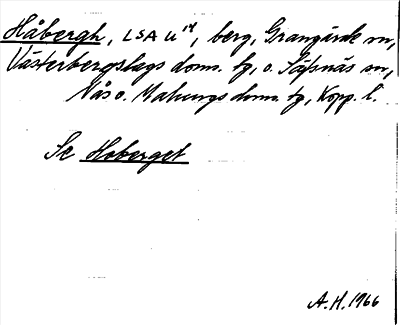 Håbergh, LSA U 14, berg, Grangärde sn,
Västerbergslags doms. tg, o. Säfsnäs sn,
Nås o. Malungs doms. tg, Kopp. l.
Se Hoberget
A.H. 1966